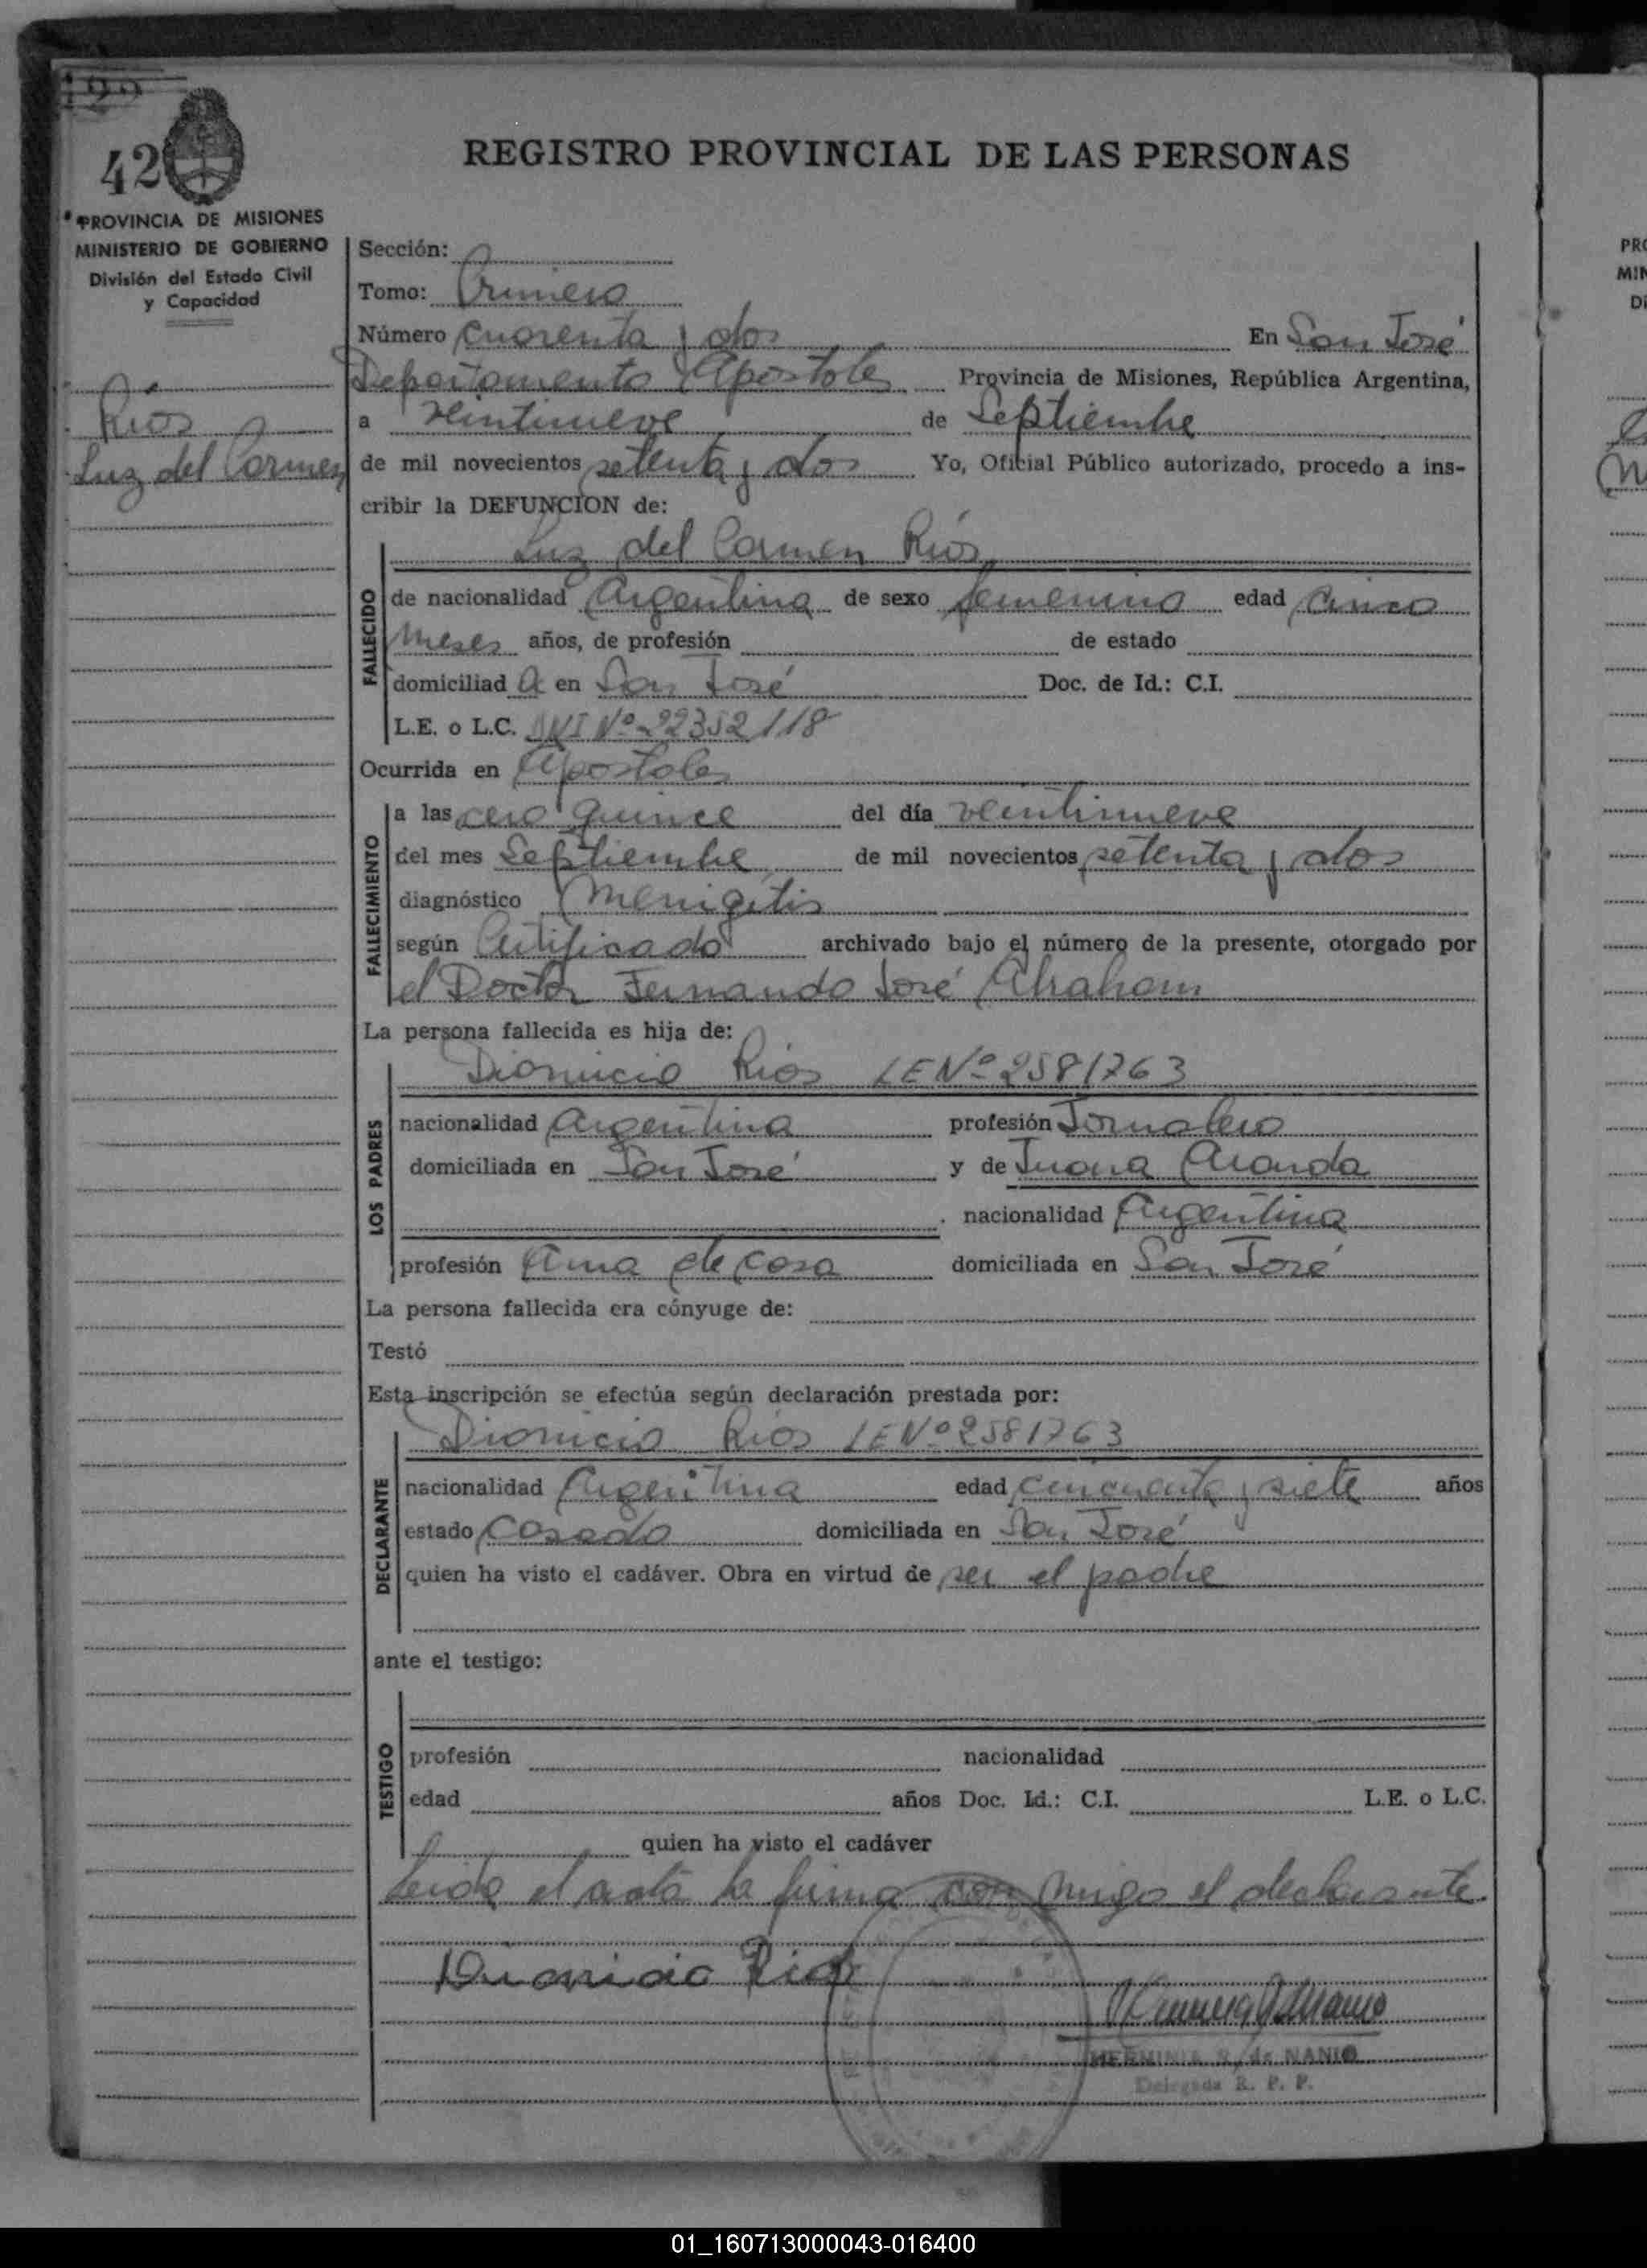 42
REGISTRO PROVINCIAL DE LAS PERSONAS
PROVINCIA DE MISIONES
MINISTERIO DE GOBIERNO
División del Estado Civil
y Capacidad
Ríos
Luz del Carmen
Sección:
Tomo: Primero
Número cuarenta y dos En San José
Departamento Apostoles Provincia de Misiones, República Argentina,
a veintinueve de Septiembre
de mil novecientos setenta y dos Yo, Oficial Público autorizado, procedo a ins-
cribir la DEFUNCION de:
Luz del Carmen Ríos
FALLECIDO
de nacionalidad Argentina de sexo femenino edad cinco
meses años, de profesión de estado
domiciliad a en San José Doc. de Id.: C.I.
L.E. o L.C. DNI Nº 22352118
Ocurrida en Apostoles
FALLECIMIENTO
a las cero quince del día veintinueve
del mes Septiembre de mil novecientos setenta y dos
diagnóstico Menigitis
según Certificado archivado bajo el número de la presente, otorgado por
el Doctor Fernando José Abraham
La persona fallecida es hija de:
LOS PADRES
Dionicio Ríos LE Nº 2581763
nacionalidad Argentina profesión Jornalero
domiciliada en San José y de Juana Aranda
nacionalidad Argentina
profesión Ama de casa domiciliada en San José
La persona fallecida era cónyuge de:
Testó
Esta inscripción se efectúa según declaración prestada por:
DECLARANTE
Dionicio Ríos LE Nº 2581763
nacionalidad Argentina edad cincuenta y siete años
estado Casado domiciliada en San José
quien ha visto el cadáver. Obra en virtud de ser el padre
ante el testigo:
TESTIGO
profesión nacionalidad
edad años Doc. Id.: C.I. L.E. o L.C.
quien ha visto el cadáver
Leida el acta la firma con migo el declarante
Dionicio Rios
HERMINIA R. de NANIO
Delegada R. P. P.
PRO
MIN
01_160713000043-016400